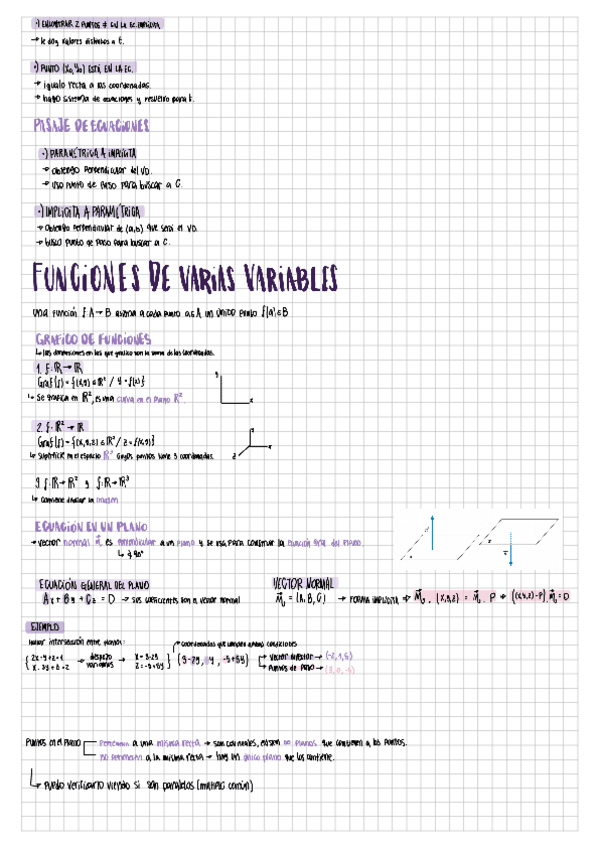 ·) ENCONTRAR 2 PUNTOS ≠ EN LA EC. IMPLÍCITA
→ le doy valores distintos a t.
·) PUNTO (x₀,y₀) ESTÁ EN LA EC.
→ igualo recta a las coordenadas.
→ hago sistema de ecuaciones y resuelvo para t.
PASAJE DE ECUACIONES
·) PARAMÉTRICA A IMPLÍCITA
→ obtengo perpendicular del VD.
→ uso punto de paso para buscar a C.
·) IMPLÍCITA A PARAMÉTRICA
→ obtengo perpendicular de (a,b) que será el VD.
→ busco punto de paso para buscar a C.
FUNCIONES DE VARIAS VARIABLES
una función f: A → B asigna a cada punto a∈A un único punto f(a)∈B
GRAFICO DE FUNCIONES
↳ las dimensiones en las que grafico son la suma de las coordenadas.
1. f: ℝ → ℝ
Graf(f) = {(x,y) ∈ ℝ² / y = f(x)}
↳ Se grafica en ℝ², es una curva en el plano ℝ².
y
x
2. f: ℝ² → ℝ
Graf(f) = {(x,y,z) ∈ ℝ³ / z = f(x,y)}
↳ superficie en el espacio ℝ³ cuyos puntos tiene 3 coordenadas.
y
x
z
3. f: ℝ → ℝ² y f: ℝ → ℝ³
↳ conviene dibujar la imagen
ECUACIÓN EN UN PLANO
→ vector normal n⃗ es perpendicular a un plano y se usa para construir la ecuación gral. del plano.
↳ 90°
ECUACIÓN GENERAL DEL PLANO
Ax + By + Cz = D → sus coeficientes son el vector normal
VECTOR NORMAL
= (A, B, C) → FORMA IMPLÍCITA ⇒ . (x,y,z) = . P → ((x,y,z)-P). = 0
EJEMPLO
→ Coordenadas que cumplen ambas condiciones
Hallar intersección entre planos:
{ 2x-y+z=1 → despejo variables → x = 3-2y } (3-2y, y, -5+5y) → Vector director → (-2,1,5)
x z = -5+5y → Puntos de paso → (3,0,-5)
Puntos en el plano
Pertenecen a una misma recta → son colineales, existen ∞ planos que contienen a los puntos.
no pertenecen a la misma recta → hay un único plano que los contiene.
↳ puedo verificarlo viendo si son paralelos (múltiplo común)